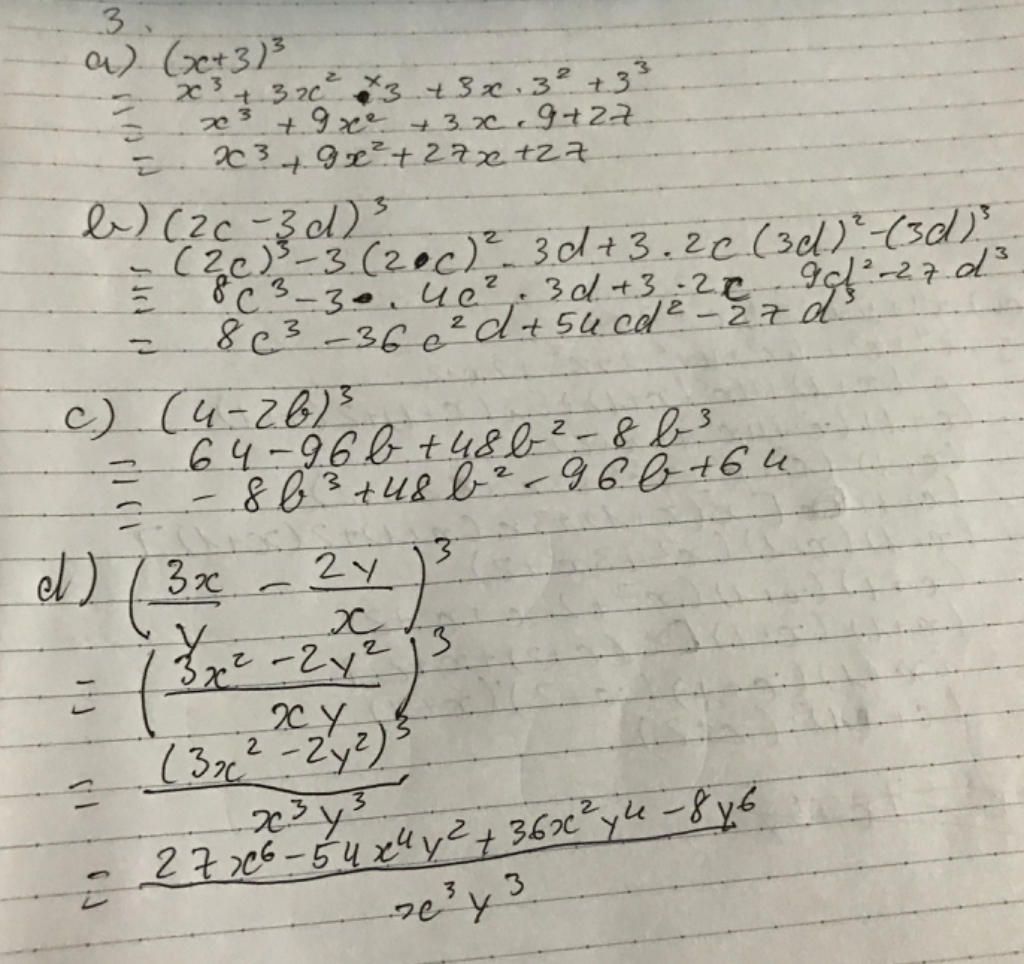 3.
a) (x+3)³
= x³ + 3x² × 3 + 3x . 3² + 3³
= x³ + 9x² + 3x . 9 + 27
= x³ + 9x² + 27x + 27
b) (2c - 3d)³
= (2c)³ - 3 (2c)² . 3d + 3 . 2c (3d)² - (3d)³
= 8c³ - 3 . 4c² . 3d + 3 . 2c 9d² - 27d³
= 8c³ - 36c²d + 54cd² - 27d³
c) (4 - 2b)³
= 64 - 96b + 48b² - 8b³
= - 8b³ + 48b² - 96b + 64
d) (3x/y - 2y/x)³
= ((3x² - 2y²)/xy)³
= (3x² - 2y²)³/x³y³
= (27x⁶ - 54x⁴y² + 36x²y⁴ - 8y⁶)/x³y³